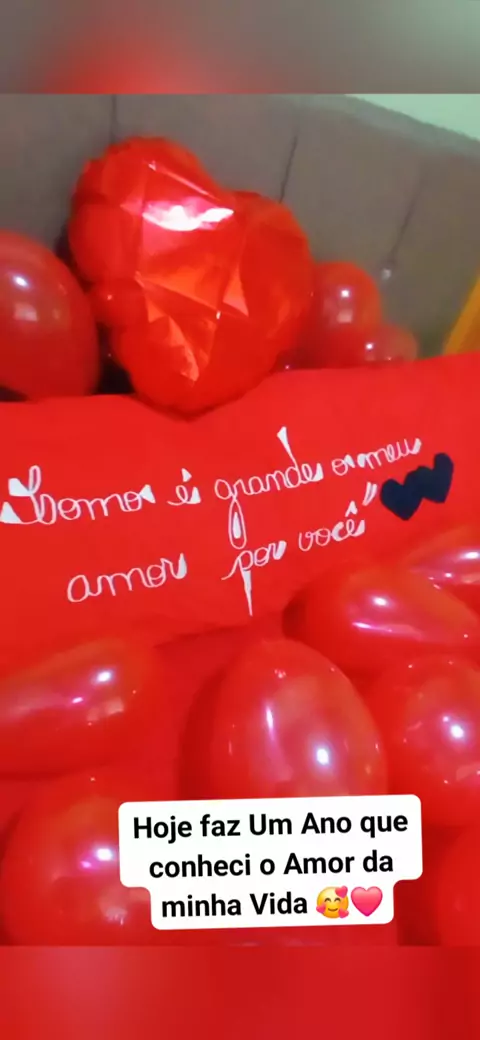 "Como é grande o meu
amor por você"
Hoje faz Um Ano que
conheci o Amor da
minha Vida 🥰❤️